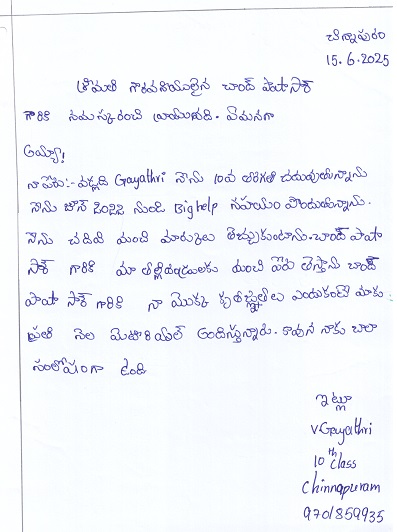 చిన్నాపురం
15.6.2025
శ్రీమతి గౌరవనీయులైన చాంద్ పాషా సార్
గారికి నమస్కరించి వ్రాయునది. ఏమనగా
అయ్యా!
నా పేరు:- వడ్లది Gayathri నేను 10వ తరగతి చదువుతున్నాను
నేను జూన్ 2022 నుండి Bighelp సహయం పొందుతున్నాను.
నేను చదివి మంచి మార్కులు తెచ్చుకుంటాను. చాంద్ పాషా
సార్ గారికి మా తల్లిదండ్రులకు మంచి పేరు తెస్తాను చాంద్
పాషా సార్ గారికి నా మొక్క కృతజ్ఞతలు ఎందుకంటే మాకు
ప్రతి నెల మెటీరియల్ అందిస్తున్నారు. కావున నాకు చాలా
సంతోషంగా ఉంది
ఇట్లు
V Gayathri
10th class
Chinnapuram
9701859935